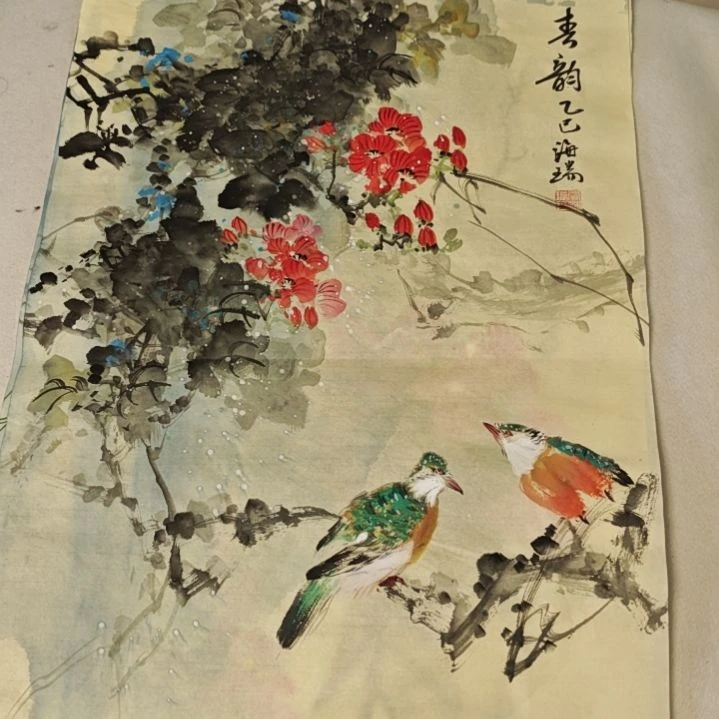 春韵乙巳海瑞